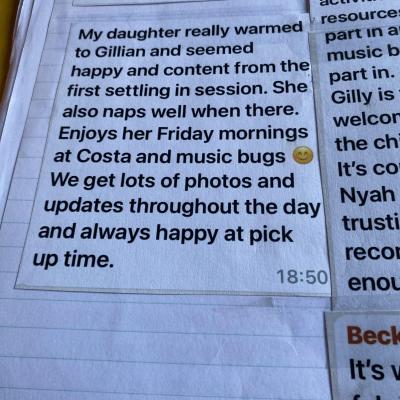 My daughter really warmed
to Gillian and seemed
happy and content from the
first settling in session. She
also naps well when there.
Enjoys her Friday mornings
at Costa and music bugs 😊
We get lots of photos and
updates throughout the day
and always happy at pick
up time.
18:50
resources
part in
music b
part in.
Gilly is
welcom
the chi
It's co
Nyah
trusti
recor
enou
Beck
It's